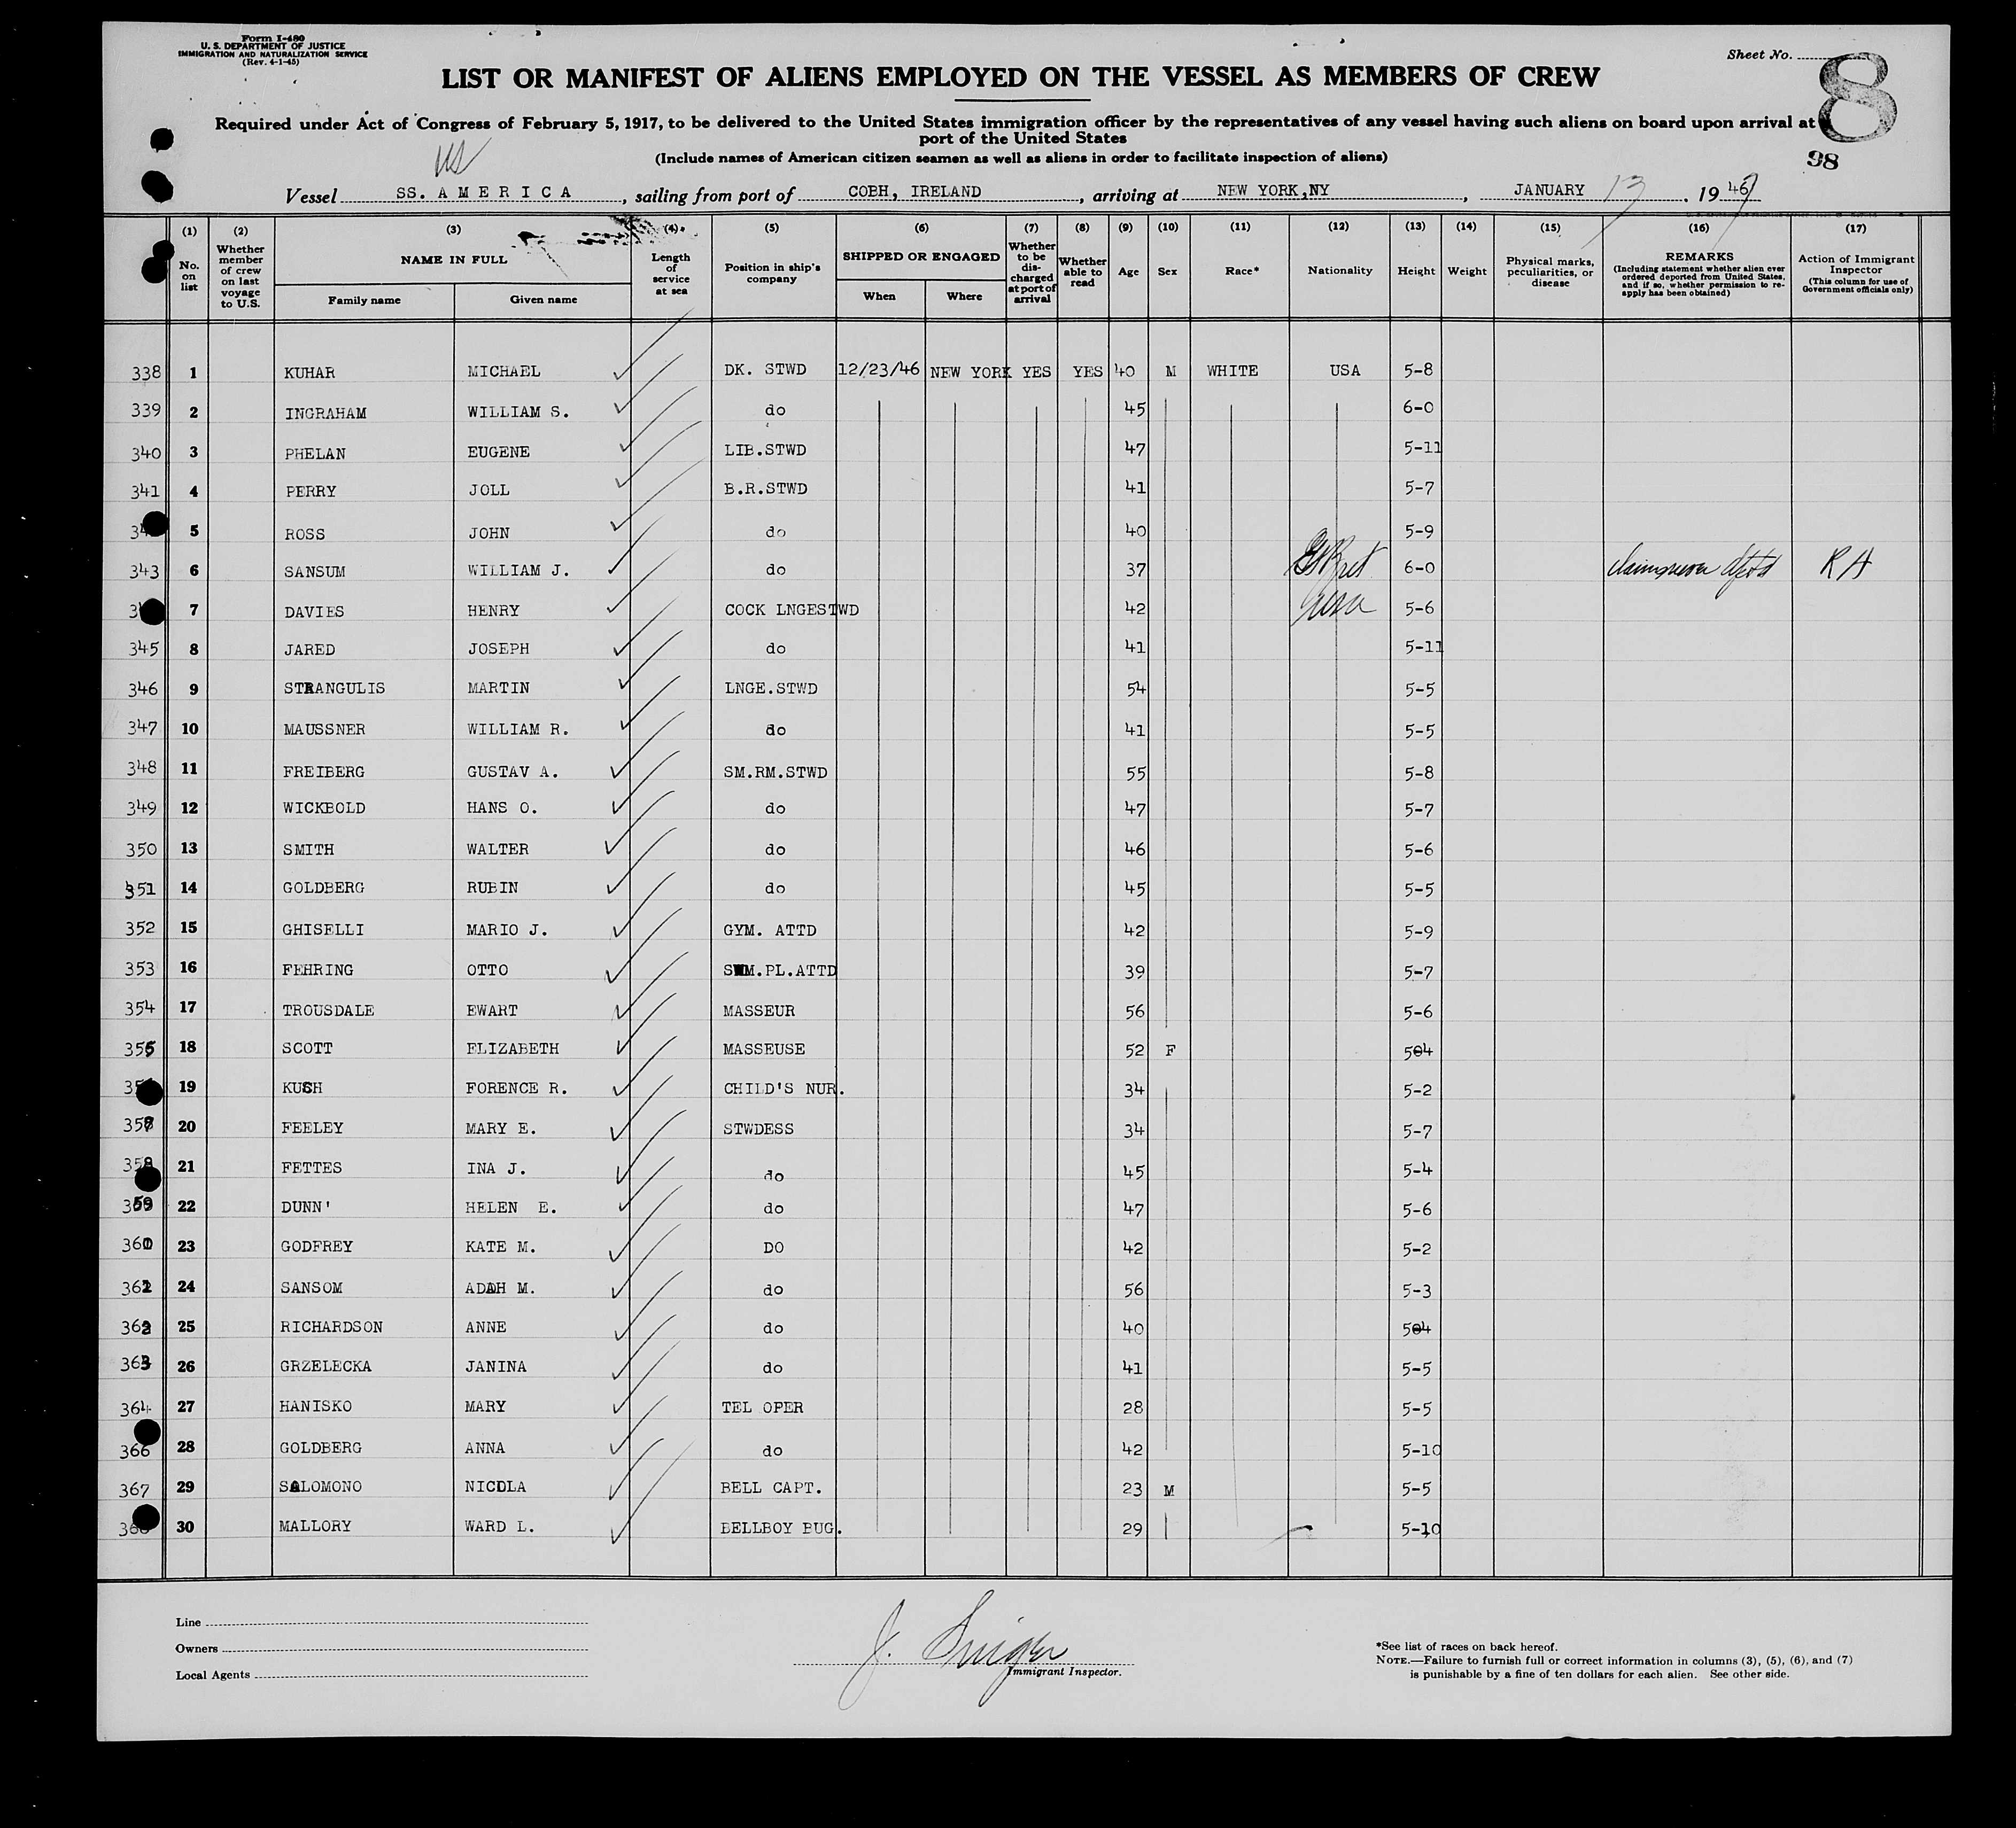 Form I-480
U. S. DEPARTMENT OF JUSTICE
IMMIGRATION AND NATURALIZATION SERVICE
(Rev. 4-1-45)
Sheet No.
8
LIST OR MANIFEST OF ALIENS EMPLOYED ON THE VESSEL AS MEMBERS OF CREW
Required under Act of Congress of February 5, 1917, to be delivered to the United States immigration officer by the representatives of any vessel having such aliens on board upon arrival at
port of the United States
(Include names of American citizen seamen as well as aliens in order to facilitate inspection of aliens)
98
US
Vessel SS. A M E R I C A, sailing from port of COBH, IRELAND, arriving at NEW YORK,NY, JANUARY 13. 1947
(1) (2) (3) (4) (5) (6) (7) (8) (9) (10) (11) (12) (13) (14) (15) (16) (17)
No. on list
Whether member of crew on last voyage to U.S.
NAME IN FULL
Family name Given name
Length of service at sea
Position in ship's company
SHIPPED OR ENGAGED
When Where
Whether to be discharged at port of arrival
Whether able to read
Age Sex Race* Nationality Height Weight
Physical marks, peculiarities, or disease
REMARKS
(Including statement whether alien ever ordered deported from United States, and if so, whether permission to reapply has been obtained)
Action of Immigrant Inspector
(This column for use of Government officials only)
338 1 KUHAR MICHAEL DK. STWD 12/23/46 NEW YORK YES YES 40 M WHITE USA 5-8
339 2 INGRAHAM WILLIAM S. do 45 6-0
340 3 PHELAN EUGENE LIB.STWD 47 5-11
341 4 PERRY JOLL B.R.STWD 41 5-7
5 ROSS JOHN do 40 5-9
343 6 SANSUM WILLIAM J. do 37 6-0 R H
7 DAVIES HENRY COCK LNGESTWD 42 usa 5-6
345 8 JARED JOSEPH do 41 5-11
346 9 STRANGULIS MARTIN LNGE.STWD 54 5-5
347 10 MAUSSNER WILLIAM R. do 41 5-5
348 11 FREIBERG GUSTAV A. SM.RM.STWD 55 5-8
349 12 WICKBOLD HANS O. do 47 5-7
350 13 SMITH WALTER do 46 5-6
351 14 GOLDBERG RUBIN do 45 5-5
352 15 GHISELLI MARIO J. GYM. ATTD 42 5-9
353 16 FEHRING OTTO SWM.PL.ATTD 39 5-7
354 17 TROUSDALE EWART MASSEUR 56 5-6
355 18 SCOTT ELIZABETH MASSEUSE 52 F 5-4
19 KUSH FORENCE R. CHILD'S NUR. 34 5-2
357 20 FEELEY MARY E. STWDESS 34 5-7
358 21 FETTES INA J. do 45 5-4
359 22 DUNN' HELEN E. do 47 5-6
360 23 GODFREY KATE M. DO 42 5-2
361 24 SANSOM ADAH M. do 56 5-3
362 25 RICHARDSON ANNE do 40 5-4
363 26 GRZELECKA JANINA do 41 5-5
364 27 HANISKO MARY TEL OPER 28 5-5
366 28 GOLDBERG ANNA do 42 5-10
367 29 SALOMONO NICOLA BELL CAPT. 23 M 5-5
30 MALLORY WARD L. BELLBOY BUG. 29 5-10
Line
Owners
Local Agents
Immigrant Inspector.
*See list of races on back hereof.
NOTE.—Failure to furnish full or correct information in columns (3), (5), (6), and (7)
is punishable by a fine of ten dollars for each alien. See other side.